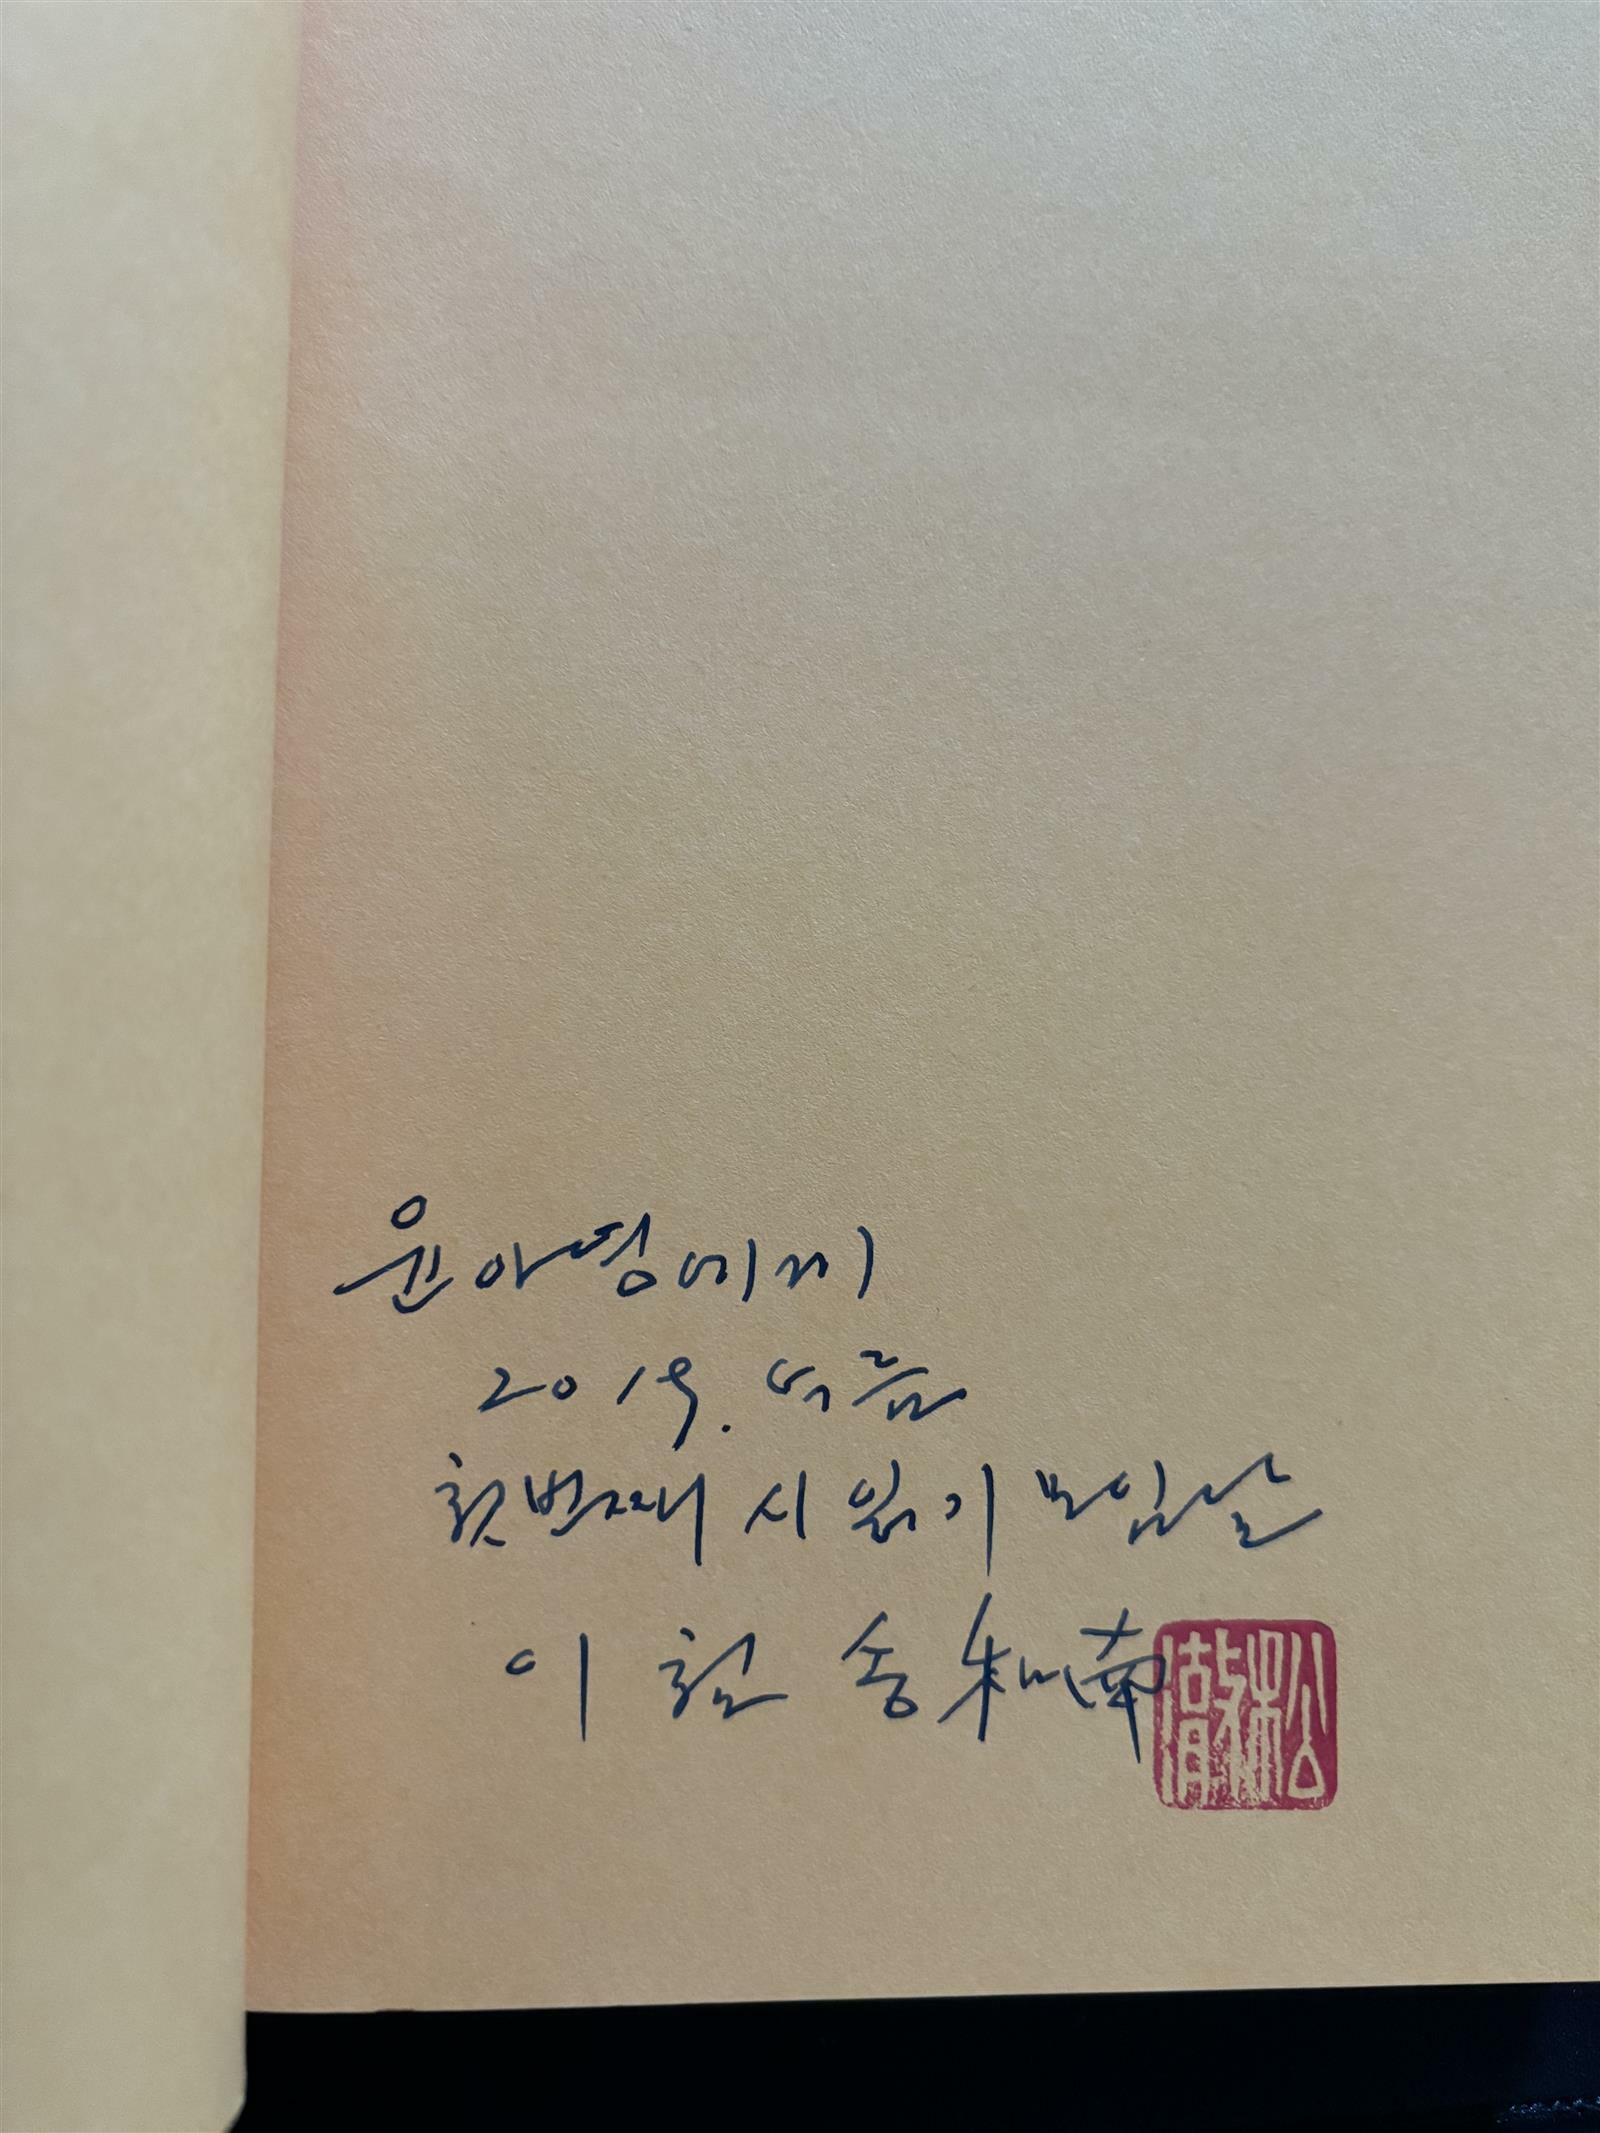 윤아영에게
2019. 여름
첫번째 시 읽기 모임날
이철송 和南